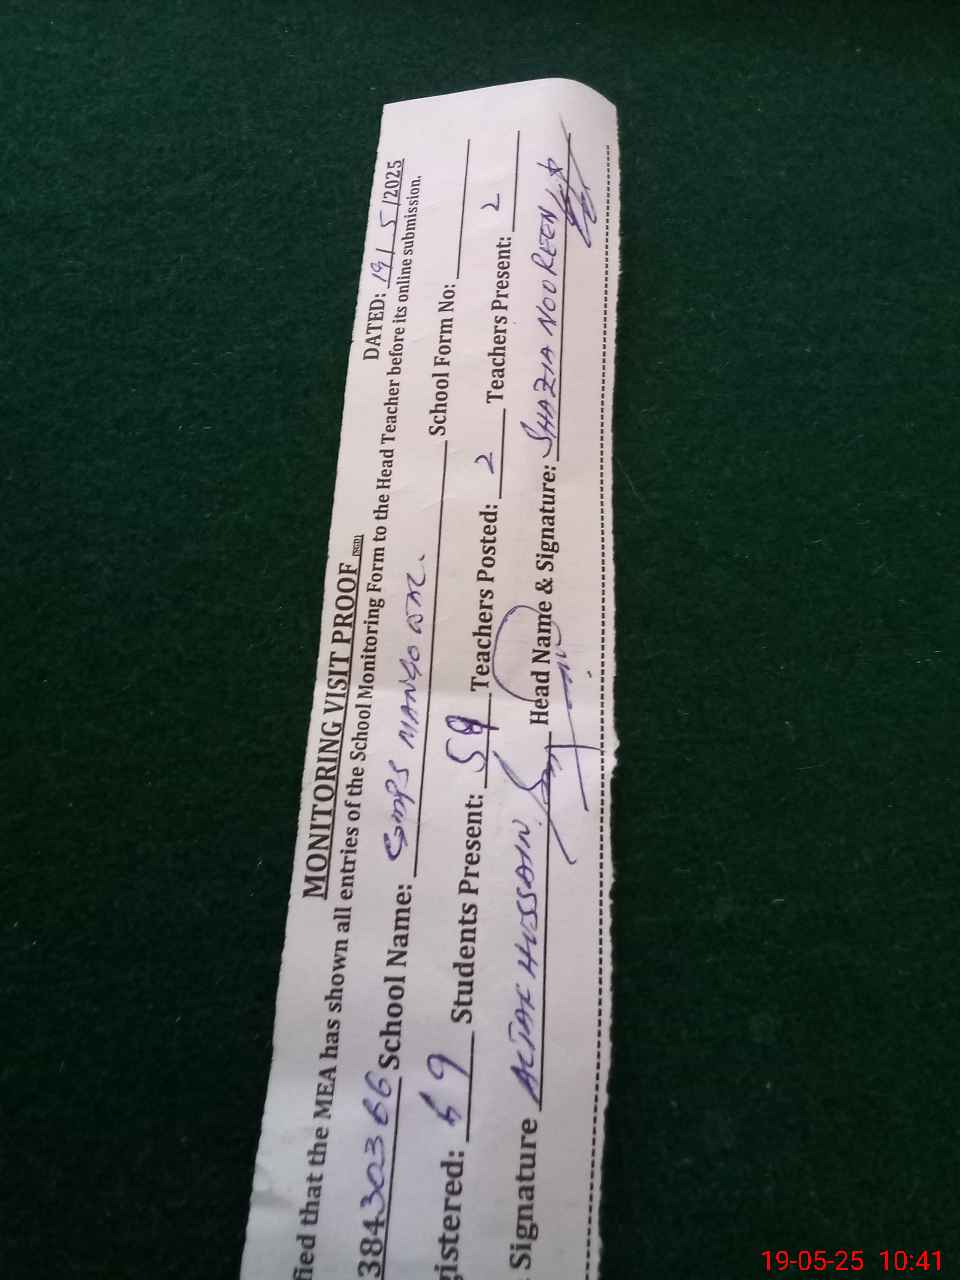 MONITORING VISIT PROOF (SGD) DATED: 19/5/2025
fied that the MEA has shown all entries of the School Monitoring Form to the Head Teacher before its online submission.
38430366 School Name: GMPS MANGOWAL. School Form No:
gistered: 69 Students Present: 59 Teachers Posted: 2 Teachers Present: 2
Signature ALTAF HUSSAIN Head Name & Signature: SHAZIA NOUREEN
19-05-25 10:41